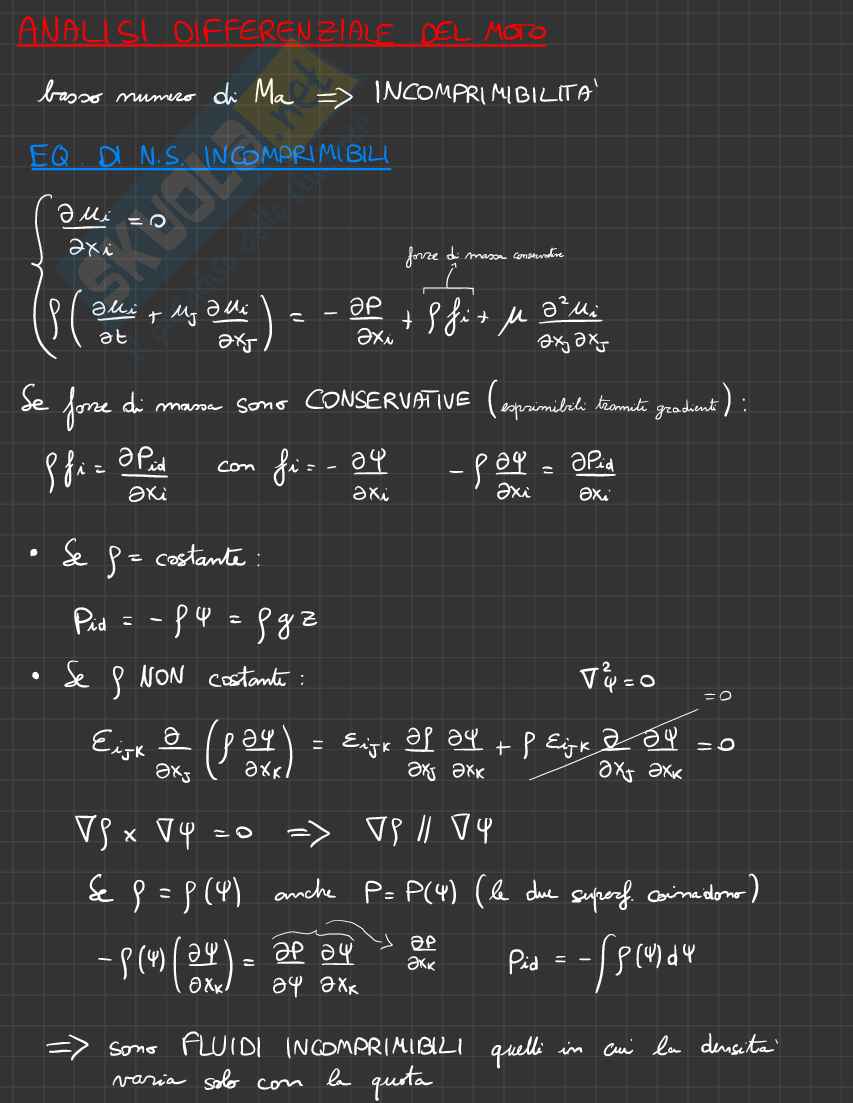 ANALISI DIFFERENZIALE DEL MOTO
basso numero di Ma ⇒ INCOMPRIMIBILITA'
EQ. DI N.S. INCOMPRIMIBILI
∂ui/∂xi = 0
forze di massa conservative
ρ(∂ui/∂t + uJ ∂ui/∂xJ) = - ∂P/∂xi + ρfi + μ ∂²ui/∂xJ∂xJ
Se forze di massa sono CONSERVATIVE (esprimibili tramite gradienti):
ρfi = ∂Pid/∂xi con fi = - ∂Ψ/∂xi - ρ ∂Ψ/∂xi = ∂Pid/∂xi
• Se ρ = costante:
Pid = - ρΨ = ρgz
• Se ρ NON costante: ∇²Ψ = 0
= 0
EiJK ∂/∂xJ (ρ ∂Ψ/∂xK) = EiJK ∂ρ/∂xJ ∂Ψ/∂xK + ρ EiJK ∂/∂xJ ∂Ψ/∂xK = 0
∇ρ × ∇Ψ = 0 ⇒ ∇ρ // ∇Ψ
Se ρ = ρ(Ψ) anche P = P(Ψ) (le due superf. coincidono)
- ρ(Ψ)(∂Ψ/∂xK) = ∂P/∂Ψ ∂Ψ/∂xK → ∂P/∂xK Pid = - ∫ρ(Ψ)dΨ
⇒ sono FLUIDI INCOMPRIMIBILI quelli in cui la densita'
varia solo con la quota
SKUOLA.net